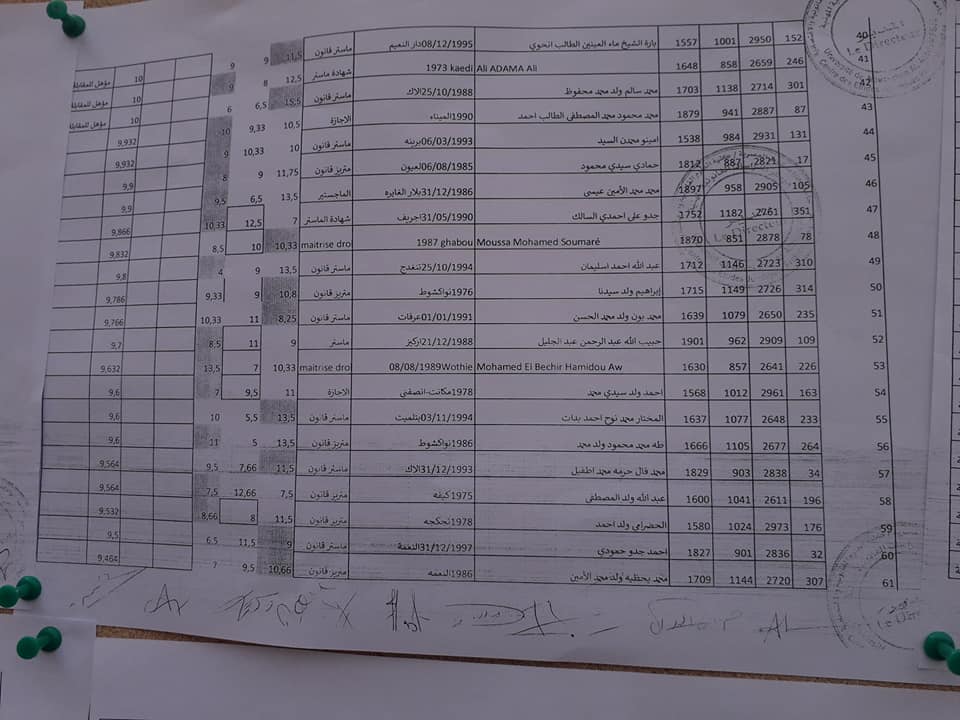 40 152 2950 1001 1557 بارة الشيخ ماء العينين الطالب انحوي 08/12/1995دار النعيم ماستر قانون 11,5 9 9 10 مؤهل للمقابلة
41 246 2659 858 1648 Ali ADAMA Ali 1973 kaedi شهادة ماستر 12,5 8 9 10 مؤهل للمقابلة
42 301 2714 1138 1703 محمد سالم ولد محمد محفوظ 25/10/1988الاك ماستر قانون 15,5 6,5 6 10 مؤهل للمقابلة
43 87 2887 941 1879 محمد محمود محمد المصطفى الطالب احمد 1990الميناء الاجازة 10,5 9,33 10 9,932
44 131 2931 984 1538 امينو محمدن السيد 06/03/1993برينه ماستر قانون 10 10,33 9 9,932
45 17 2821 887 1812 حمادي سيدي محمود 06/08/1985لعيون متريز قانون 11,75 9 8 9,9
46 105 2905 958 1897 محمد محمد الأمين عيسى 31/12/1986بلار الغايره الماجستير 13,5 6,5 9,5 9,9
47 351 2761 1182 1752 جدو على احمدي السالك 31/05/1990اجريف شهادة الماستر 7 12,5 10,33 9,866
48 78 2878 851 1870 Moussa Mohamed Soumaré 1987 ghabou maitrise dro 10,33 10 8,5 9,832
49 310 2723 1146 1712 عبد الله احمد اسليمان 25/10/1994تنغدج ماستر قانون 13,5 9 4 9,8
50 314 2726 1149 1715 إبراهيم ولد سيدنا 1976نواكشوط متريز قانون 10,8 9 9,33 9,786
51 235 2650 1079 1639 محمد بون ولد محمد الحسن 01/01/1991عرفات ماستر قانون 8,25 11 10,33 9,766
52 109 2909 962 1901 حبيب الله عبد الرحمن عبد الجليل 21/12/1988اركيز ماستر 9 11 8,5 9,7
53 226 2641 857 1630 Mohamed El Bechir Hamidou Aw 08/08/1989Wothie maitrise dro 10,33 7 13,5 9,632
54 163 2961 1012 1568 احمد ولد سيدي محمد 1978مكانت-انصفنى الاجازة 11 9,5 7 9,6
55 233 2648 1077 1637 المختار محمد نوح احمد بدات 03/11/1994بتلميت ماستر قانون 13,5 5,5 10 9,6
56 264 2677 1105 1666 طه محمد محمود ولد محمد 1986نواكشوط متريز قانون 13,5 5 11 9,6
57 34 2838 903 1829 محمد فال حرمه محمد اطفيل 31/12/1993الاك ماستر قانون 11,5 7,66 9,5 9,564
58 196 2611 1041 1600 عبد الله ولد المصطفى 1975كيفه متريز قانون 7,5 12,66 7,5 9,564
59 176 2973 1024 1580 الحضرامي ولد احمد 1978تجكجه متريز قانون 11,5 8 8,66 9,532
60 32 2836 901 1827 احمد جدو حمودي 31/12/1997النعمة ماستر قانون 9 11,5 6,5 9,5
61 307 2720 1144 1709 محمد يحظيه ولد محمد الأمين 1986النعمه متريز قانون 10,66 9,5 7 9,464
Le Directeur